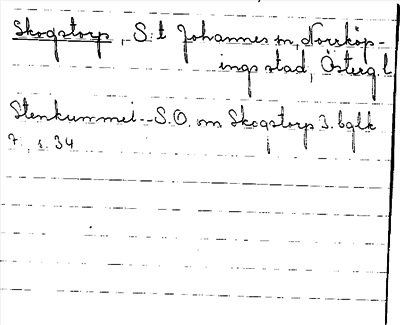 Skogstorp, S:t Johannes sn, Norrköp-
ings stad, Österg.l.
Stenkummel--S.O. om Skogstorp 3. bglk
7, s. 34